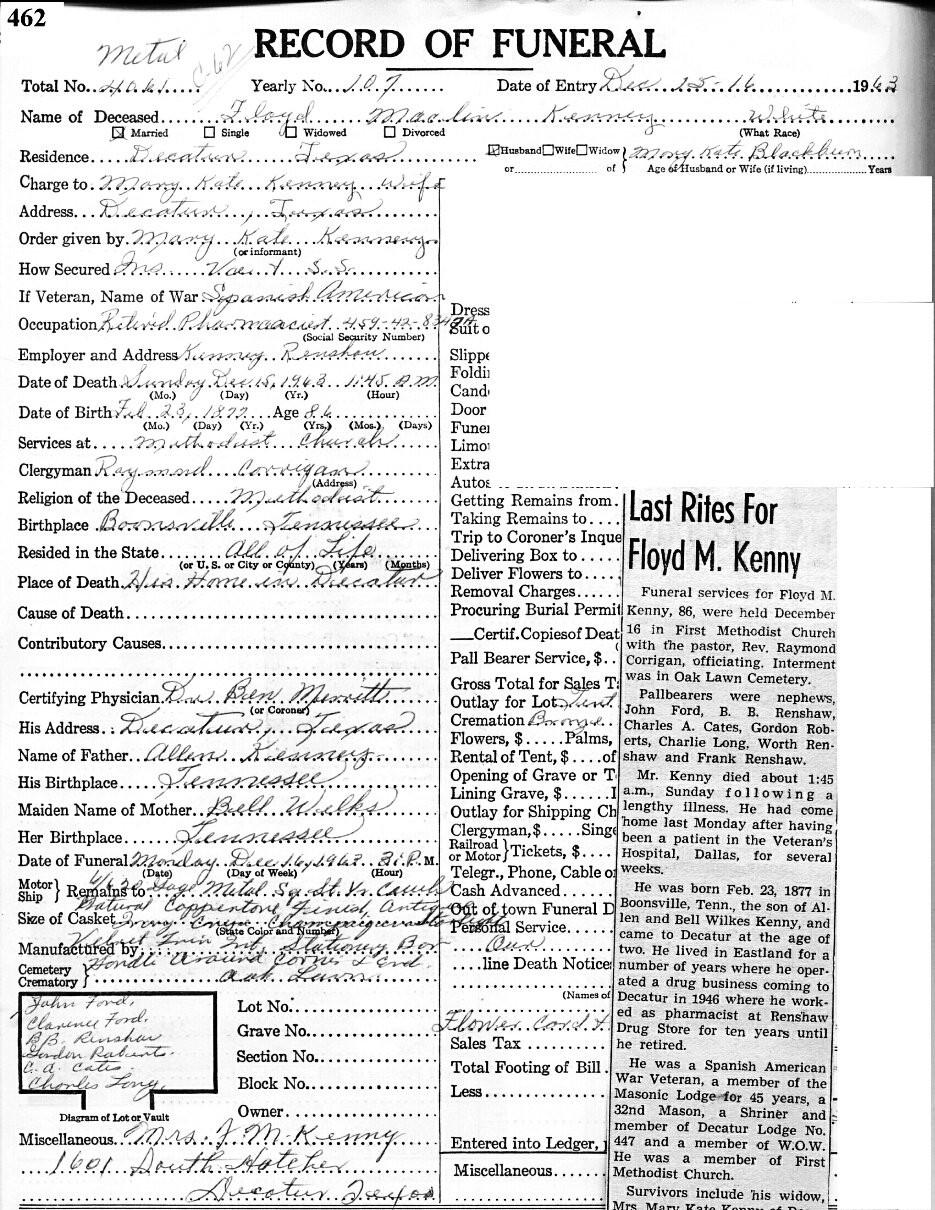 462
Metal
C-62
RECORD OF FUNERAL
Total No. 4061 Yearly No. 107 Date of Entry Dec 15-16 1963
Name of Deceased Floyd Maclin Kenney White
Married Single Widowed Divorced (What Race)
Residence Decatur Texas Husband Wife Widow Mary Kate Blackburn
or of Age of Husband or Wife (if living) Years
Charge to Mary Kate Kenney Wife
Address Decatur, Texas
Order given by Mary Kate Kenney
(or informant)
How Secured Ins. Vac & S.S.
If Veteran, Name of War Spanish American
Occupation Retired Pharmacist 459-42-8348A
(Social Security Number)
Employer and Address Kenney Renshaw
Date of Death Sunday Dec 15, 1963 1:45 A.M.
(Mo.) (Day) (Yr.) (Hour)
Date of Birth Feb 23, 1877 Age 86
(Mo.) (Day) (Yr.) (Yrs.) (Mos.) (Days)
Services at Methodist Church
Clergyman Raymond Corrigan
(Address)
Religion of the Deceased Methodist
Birthplace Boonsville Tennessee
Resided in the State All of Life
(or U. S. or City or County) (Years) (Months)
Place of Death His Home in Decatur
Cause of Death
Contributory Causes
Certifying Physician Dr. Ben Merritt
(or Coroner)
His Address Decatur, Texas
Name of Father Allen Kenney
His Birthplace Tennessee
Maiden Name of Mother Bell Wilks
Her Birthplace Tennessee
Date of Funeral Monday Dec 16, 1963 3:P.M.
(Date) (Day of Week) (Hour)
Motor Ship Remains to Gage Metal Sq
Natural Coppertone Finish, Antique
Size of Casket
(State Color and Number)
Manufactured by Velvet Stationery Bar
Handle Around Corner & End
Cemetery Crematory Oak Lawn
John Ford,
Clarence Ford,
B.B. Renshaw
Gordon Roberts.
C.A. Cates
Charles Long,
Diagram of Lot or Vault
Lot No.
Grave No.
Section No.
Block No.
Owner
Miscellaneous Mrs. F M Kenny
1601 South Hatcher
Decatur Texas
Dress
Suit o
Slippe
Foldi
Cand
Door
Funer
Limo
Extra
Autos
Getting Remains from
Taking Remains to
Trip to Coroner's Inque
Delivering Box to
Deliver Flowers to
Removal Charges
Procuring Burial Permit
Certif. Copies of Deat
Pall Bearer Service, $
Gross Total for Sales T
Outlay for Lot Tent
Cremation Bronze
Flowers, $ Palms,
Rental of Tent, $ of
Opening of Grave or T
Lining Grave, $
Outlay for Shipping Ch
Clergyman, $ Singe
Railroad or Motor Tickets, $
Telegr., Phone, Cable o
Cash Advanced
Out of town Funeral D
Personal Service
Our
line Death Notice
(Names of
Flower Card &
Sales Tax
Total Footing of Bill
Less
Entered into Ledger,
Miscellaneous
Last Rites For
Floyd M. Kenny
Funeral services for Floyd M.
Kenny, 86, were held December
16 in First Methodist Church
with the pastor, Rev. Raymond
Corrigan, officiating. Interment
was in Oak Lawn Cemetery.
Pallbearers were nephews,
John Ford, B. B. Renshaw,
Charles A. Cates, Gordon Rob-
erts, Charlie Long, Worth Ren-
shaw and Frank Renshaw.
Mr. Kenny died about 1:45
a.m., Sunday following a
lengthy illness. He had come
home last Monday after having
been a patient in the Veteran's
Hospital, Dallas, for several
weeks.
He was born Feb. 23, 1877 in
Boonsville, Tenn., the son of Al-
len and Bell Wilkes Kenny, and
came to Decatur at the age of
two. He lived in Eastland for a
number of years where he oper-
ated a drug business coming to
Decatur in 1946 where he work-
ed as pharmacist at Renshaw
Drug Store for ten years until
he retired.
He was a Spanish American
War Veteran, a member of the
Masonic Lodge for 45 years, a
32nd Mason, a Shriner and
member of Decatur Lodge No.
447 and a member of W.O.W.
He was a member of First
Methodist Church.
Survivors include his widow,
Mrs. Mary Kate Kenny of